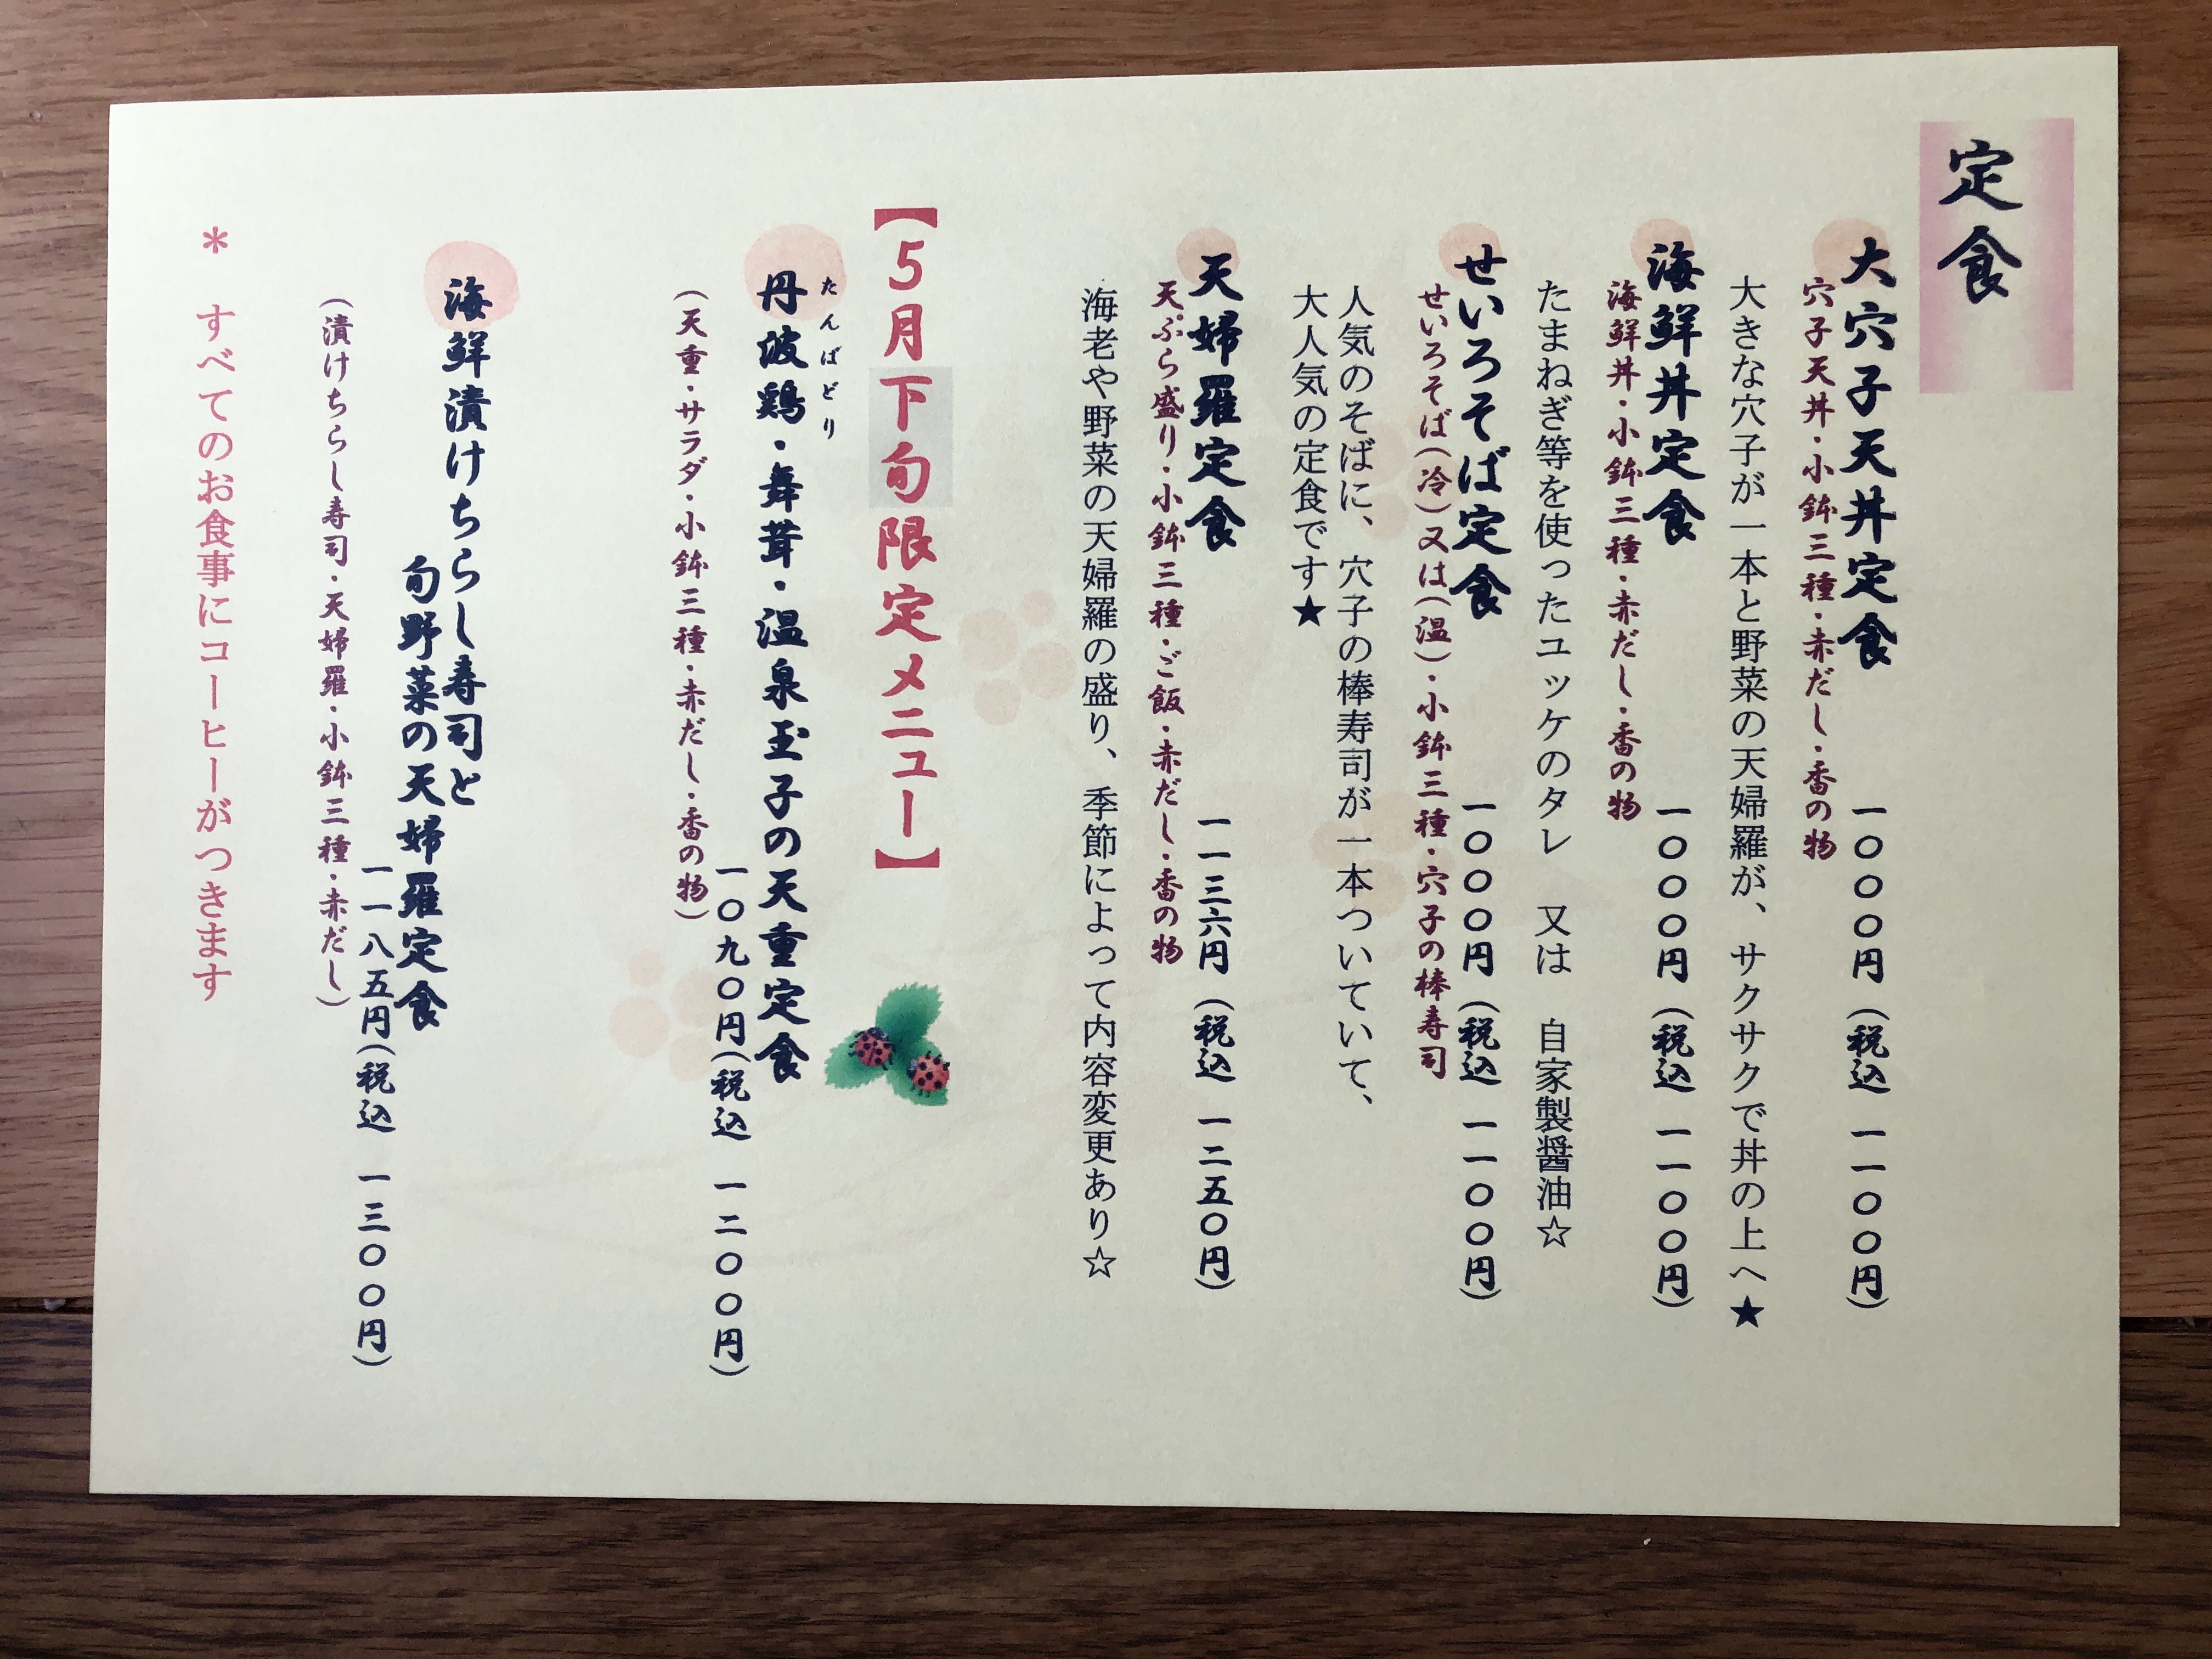 定食
大穴子天丼定食　一〇〇〇円（税込　一一〇〇円）
穴子天丼・小鉢三種・赤だし・香の物
大きな穴子が一本と野菜の天婦羅が、サクサクで丼の上へ★
海鮮丼定食　一〇〇〇円（税込　一一〇〇円）
海鮮丼・小鉢三種・赤だし・香の物
たまねぎ等を使ったユッケのタレ　又は　自家製醤油☆
せいろそば定食　一〇〇〇円（税込　一一〇〇円）
せいろそば（冷）又は（温）・小鉢三種・穴子の棒寿司
人気のそばに、穴子の棒寿司が一本ついていて、
大人気の定食です★
天婦羅定食　一一三六円（税込　一二五〇円）
天ぷら盛り・小鉢三種・ご飯・赤だし・香の物
海老や野菜の天婦羅の盛り、季節によって内容変更あり☆
【５月下旬限定メニュー】
たんばどり
丹波鶏・舞茸・温泉玉子の天重定食
一〇九〇円（税込　一二〇〇円）
（天重・サラダ・小鉢三種・赤だし・香の物）
海鮮漬けちらし寿司と
旬野菜の天婦羅定食
一一八五円（税込　一三〇〇円）
（漬けちらし寿司・天婦羅・小鉢三種・赤だし）
＊　すべてのお食事にコーヒーがつきます